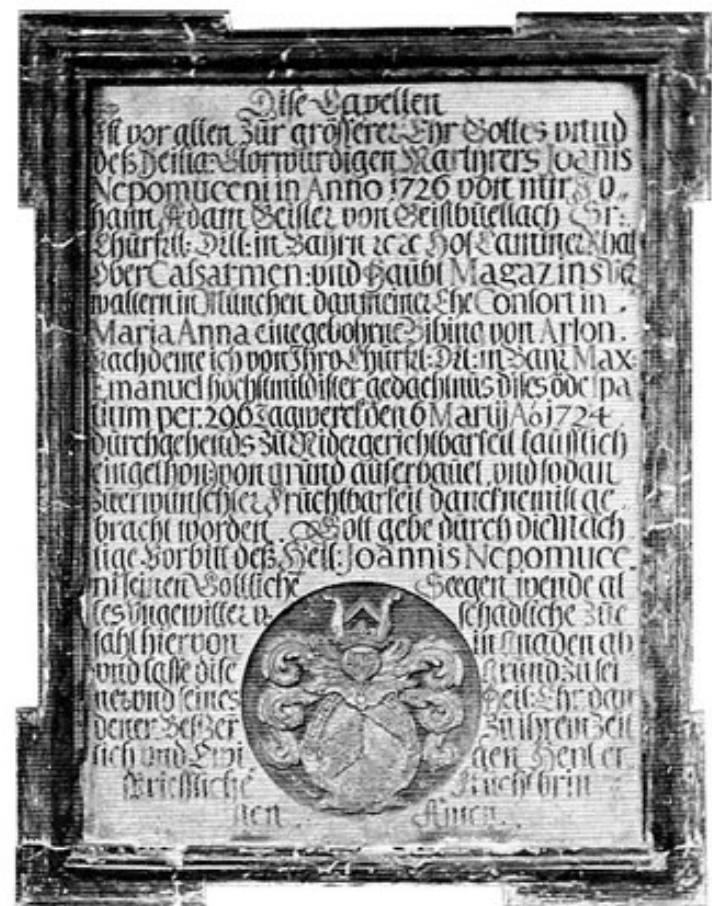 Dise Capellen
Ist vor allen zur grösserer Ehr Gottes vnnd
deß Heilig: Glorwürdigen Martyrers Joanis
Nepomuceni in Anno 1726 von mir Jo„
hann Adam Geisler von Geislbüellach Sr:
Churfrtl: Drl: in Bayrn Hof Cammer Rhat
Ober Cassarmen: vnd Haubt Magazins Ver
waltern in München dan meiner Ehe Consortin.
Maria Anna eine gebohrne Bibing von Arlon.
Nachdeme ich von Ihro Churfrl: Drl: in Bayr: Max:
Emanuel höchstmildister gedächtnus dises öde spa
tium per. 296 Tagwerch den 6 Martij Ao 1724
durchgehends zu Nidergerichtbarkeit käufflich
eingethon: von grund auferbauet, vnd sodan
zuerwünschter Fruchtbarkeit danckhnemist ge
bracht worden. Gott gebe durch die Mäch
tige Vorbitt deß Heil: Joannis Nepomuce
ni seinen Göttliche Seegen, wende al
les Vngewitter v: schädliche zue
fähl hiervon in Gnaden ab
vnd lasse dise Gründ zu sei
ner vnd seines Heil: Ehr dan
denen Besizer zu ihrem Zeit
lich vnd Ewi gen Heyl er
Sriessliche Frucht brin
gen Amen.